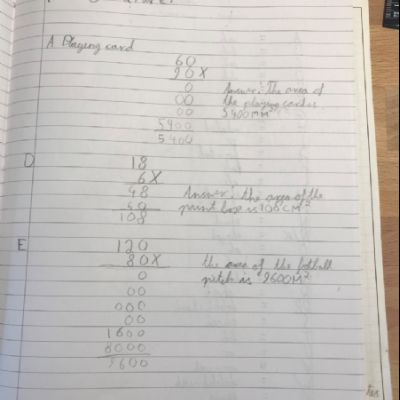 A Playing card
60
90X
0
00
00
5400
5400
Answer: The area of
the playing card is
5400mm²
D
18
6X
48
60
108
Answer: the area of the
paint box is 108CM²
E
120
80X
0
00
000
00
1600
8000
9600
the area of the football
pitch is 9600M²